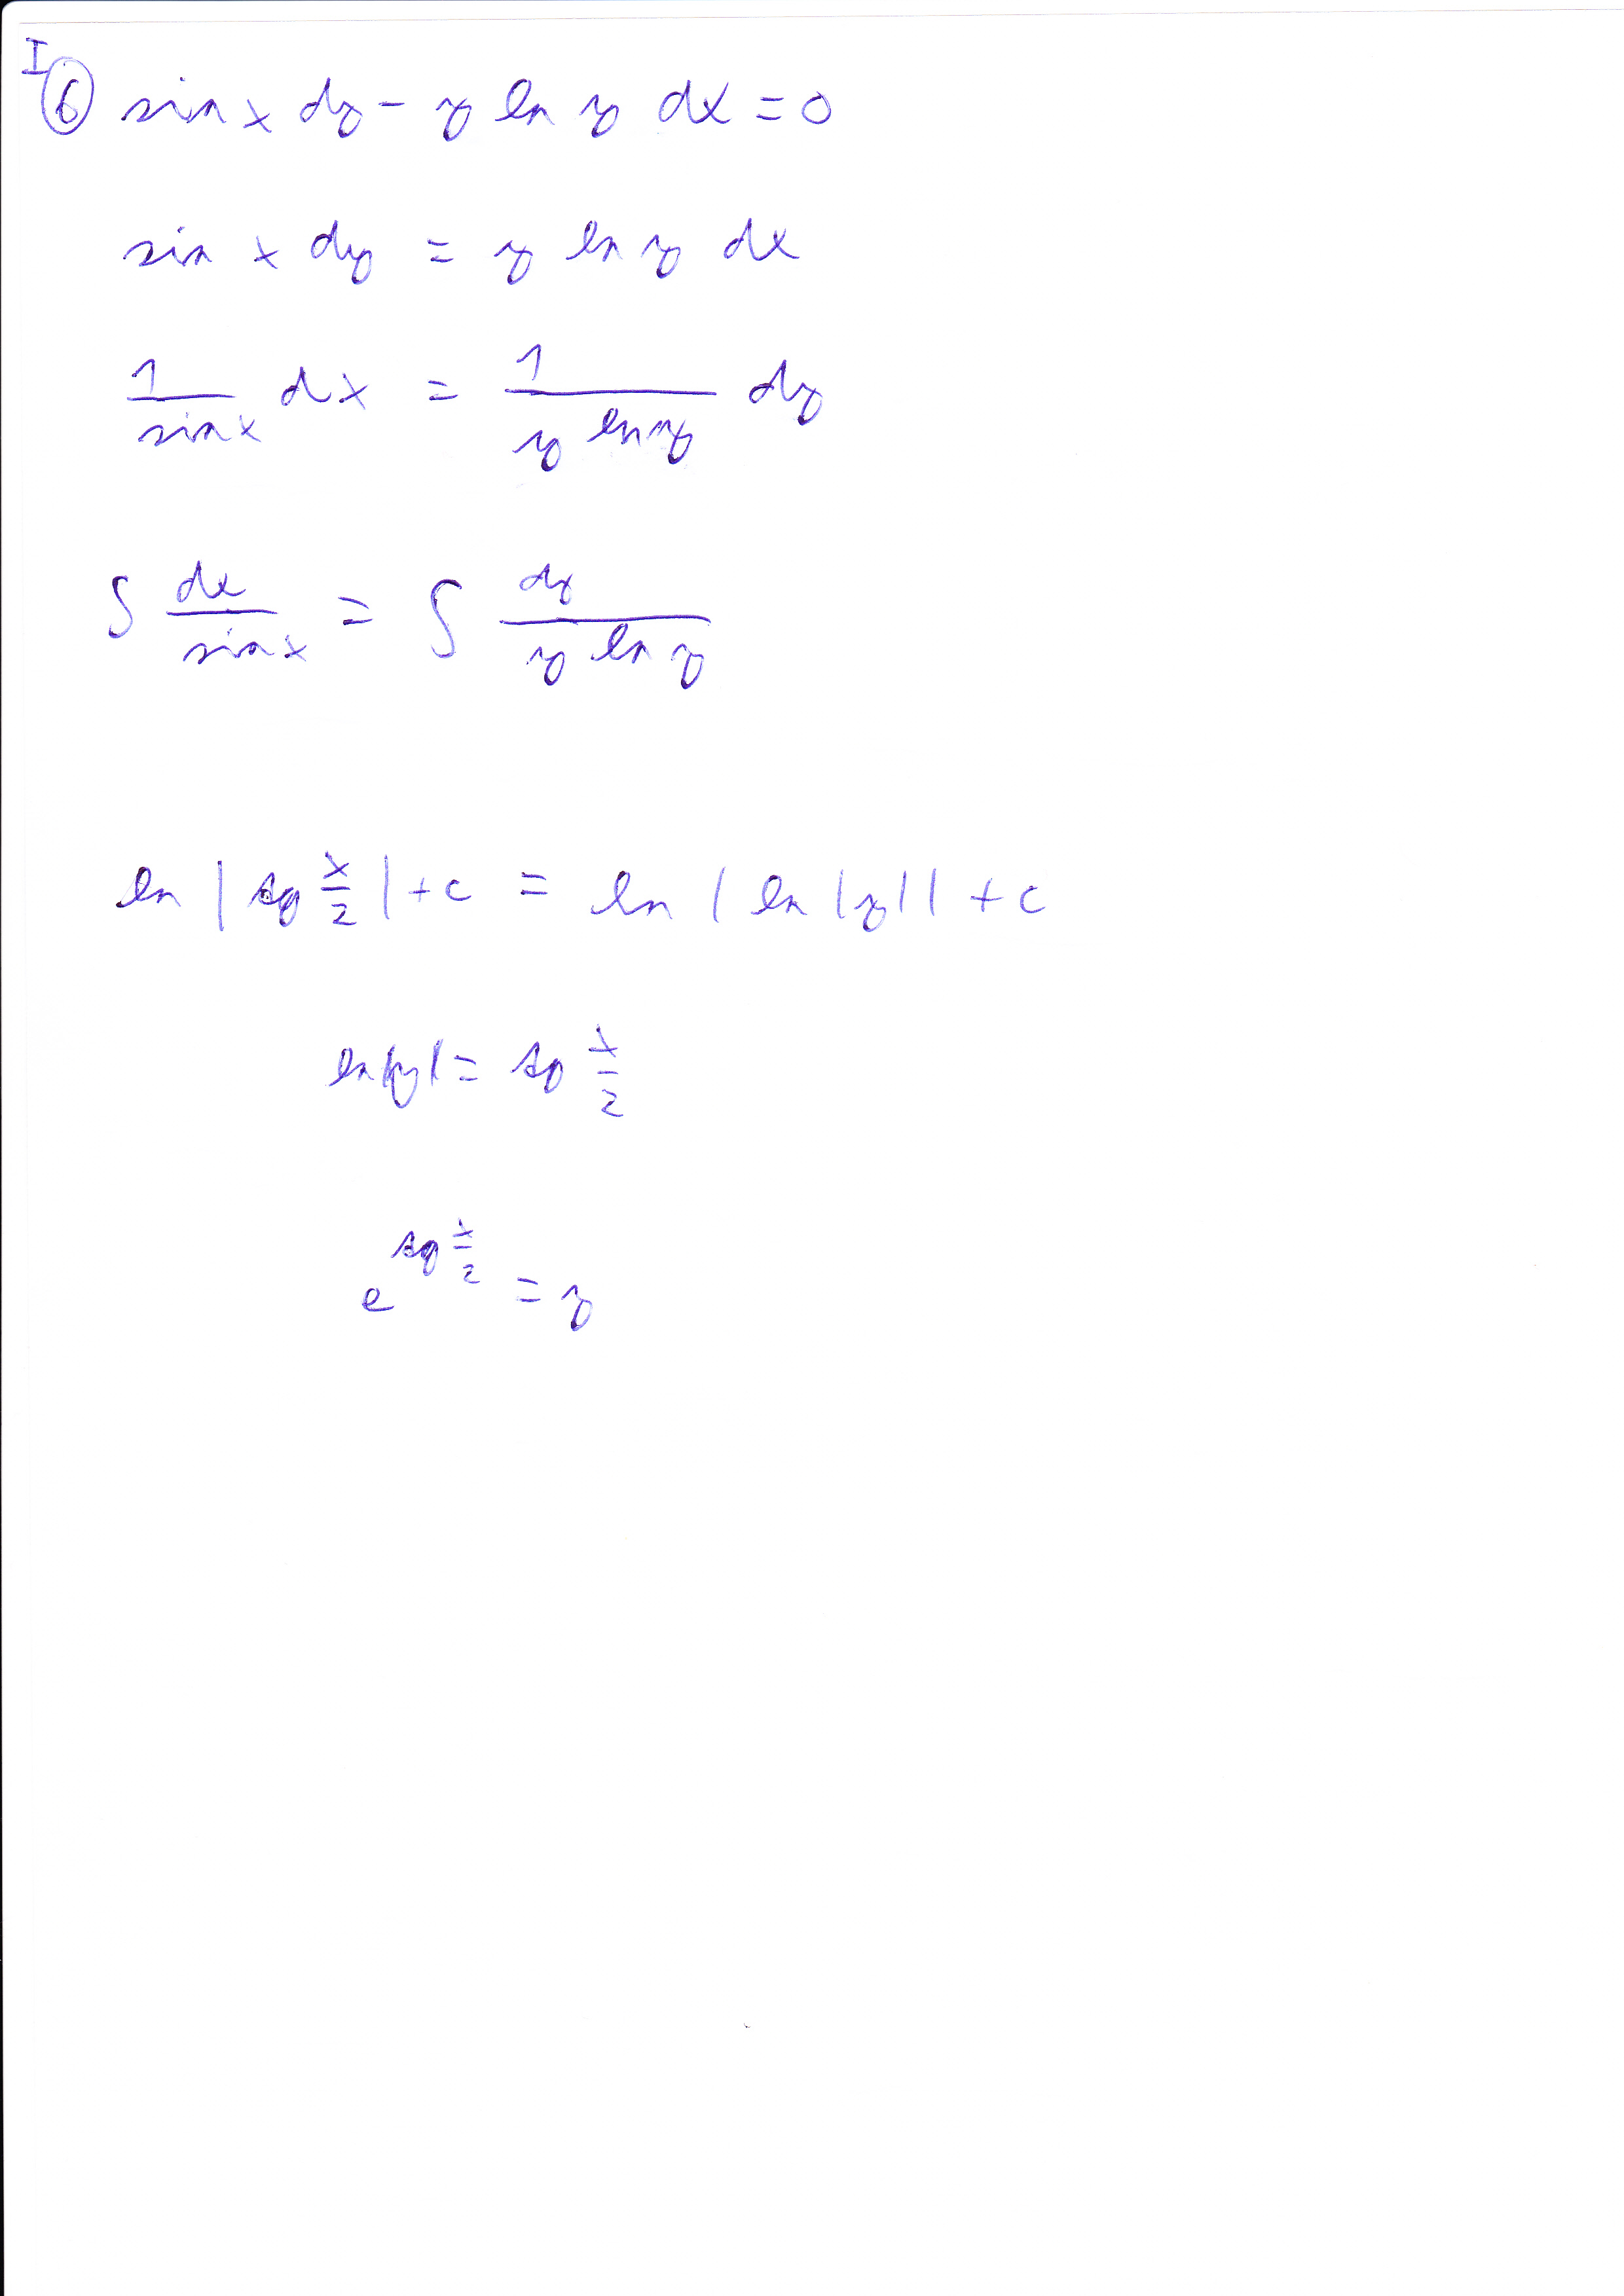 I
⑥ sin x dy - y ln y dx = 0
sin x dy = y ln y dx
1/sin x dx = 1/(y ln y) dy
∫ dx/sin x = ∫ dy/(y ln y)
ln |tg x/2| + c = ln |ln |y|| + c
ln|y| = tg x/2
e^(tg x/2) = y